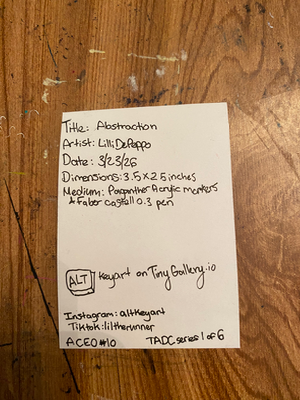 Title: Abstraction
Artist: Lilli DePoppo
Date: 3/23/26
Dimensions: 3.5 x 2.5 inches
Medium: Acrylic markers
& Faber Castell 0.3 pen
ALT Keyart on TinyGallery.io
Instagram: altkeyart
Tiktok: liltherunner
ACEO #10 TADC series 1 of 6